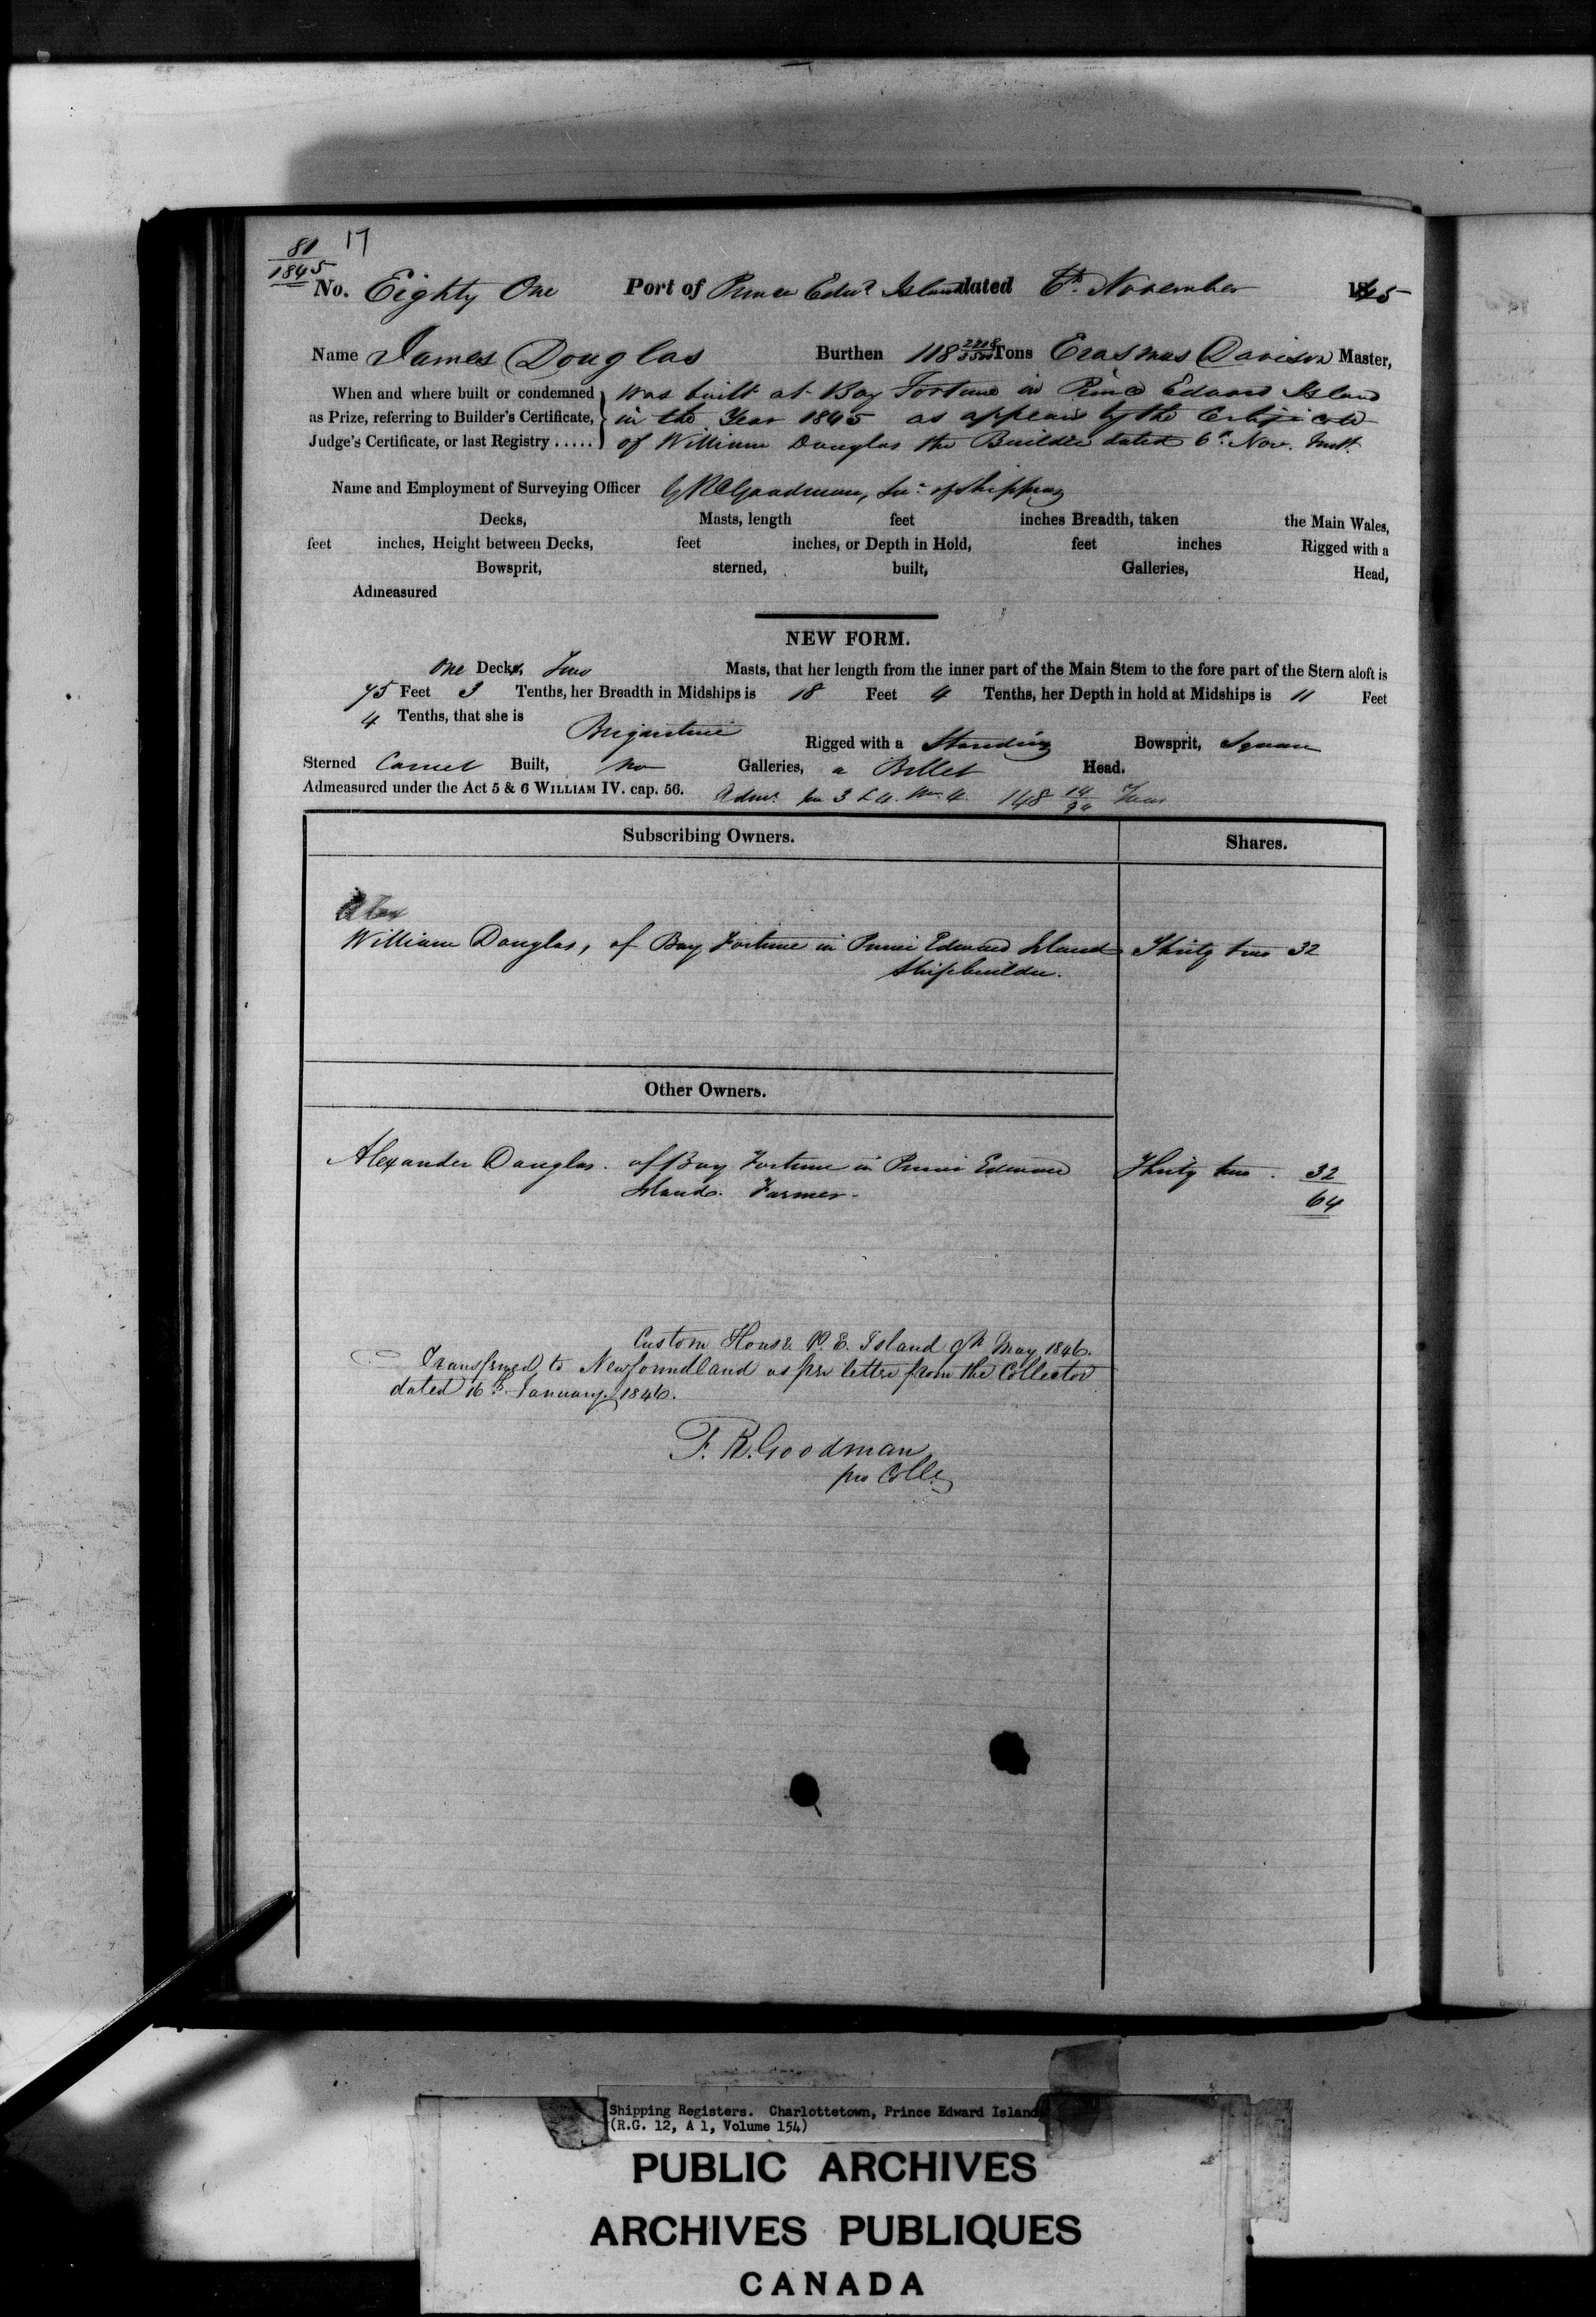 81 17
1845
No. Eighty One Port of Prince Edwd Island dated 6th November 1845
Name James Douglas Burthen 118 Tons Erasmus Davison Master,
When and where built or condemned was built at Bay Fortune in Prince Edward Island
as Prize, referring to Builder's Certificate, in the Year 1845 as appears by the Certificate
Judge's Certificate, or last Registry ..... of William Douglas the Builder dated 6th Nov. Inst.
Name and Employment of Surveying Officer Goodman, Sur. of Shipping
Decks, Masts, length feet inches Breadth, taken the Main Wales,
feet inches, Height between Decks, feet inches, or Depth in Hold, feet inches Rigged with a
Bowsprit, sterned, built, Galleries, Head,
Admeasured
NEW FORM.
One Decks, Two Masts, that her length from the inner part of the Main Stem to the fore part of the Stern aloft is
75 Feet 3 Tenths, her Breadth in Midships is 18 Feet 4 Tenths, her Depth in hold at Midships is 11 Feet
4 Tenths, that she is Brigantine Rigged with a Standing Bowsprit, Square
Sterned Carvel Built, no Galleries, a Billet Head.
Admeasured under the Act 5 & 6 WILLIAM IV. cap. 56. Admt. pr 3 & 4 Wm. 4. 148 14/94 Tons
Subscribing Owners. Shares.
Alex
William Douglas, of Bay Fortune in Prince Edward Island Thirty two 32
Shipbuilder.
Other Owners.
Alexander Douglas. of Bay Fortune in Prince Edward Thirty two. 32
Island. Farmer. 64
Custom House P. E. Island 9th May 1846.
Transferred to Newfoundland as per letter from the Collector
dated 16th January 1846.
F. R. Goodman
pro Collr
Shipping Registers. Charlottetown, Prince Edward Island
(R.G. 12, A 1, Volume 154)
PUBLIC ARCHIVES
ARCHIVES PUBLIQUES
CANADA